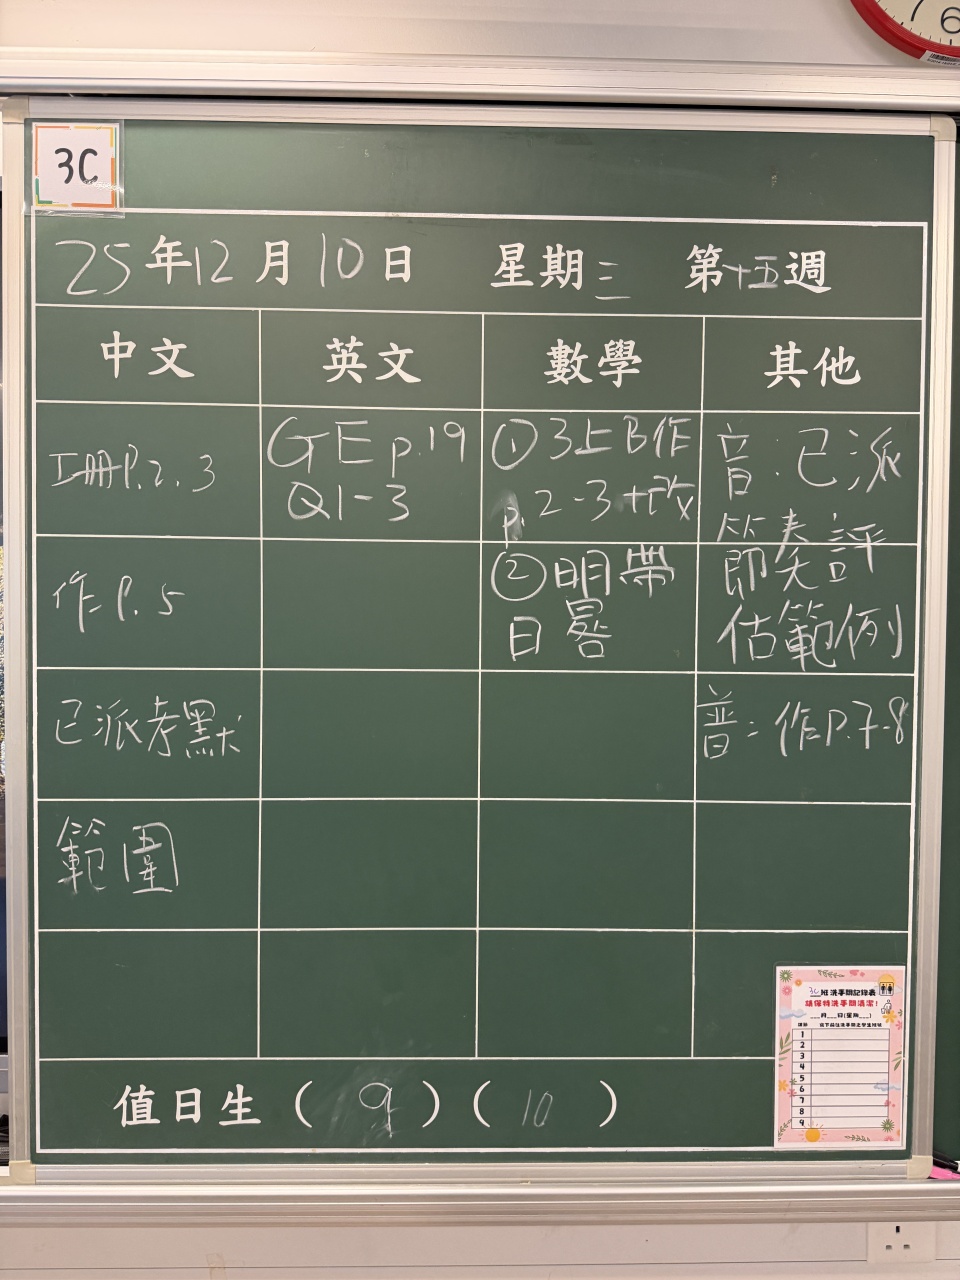 7 6
3C
25年12月10日 星期三 第十五週
中文 英文 數學 其他
工冊P.2,3
作P.5
已派考默
範圍
GE p.19
Q1-3
①3上B作
p.2-3+改
②明帶
日
音:已派
評
估範例
普:作P.7-8
3C班洗手間記錄表
請保持洗手間清潔!
___月___日(星期___)
1
2
3
4
5
6
7
8
9
值日生(9)(10)